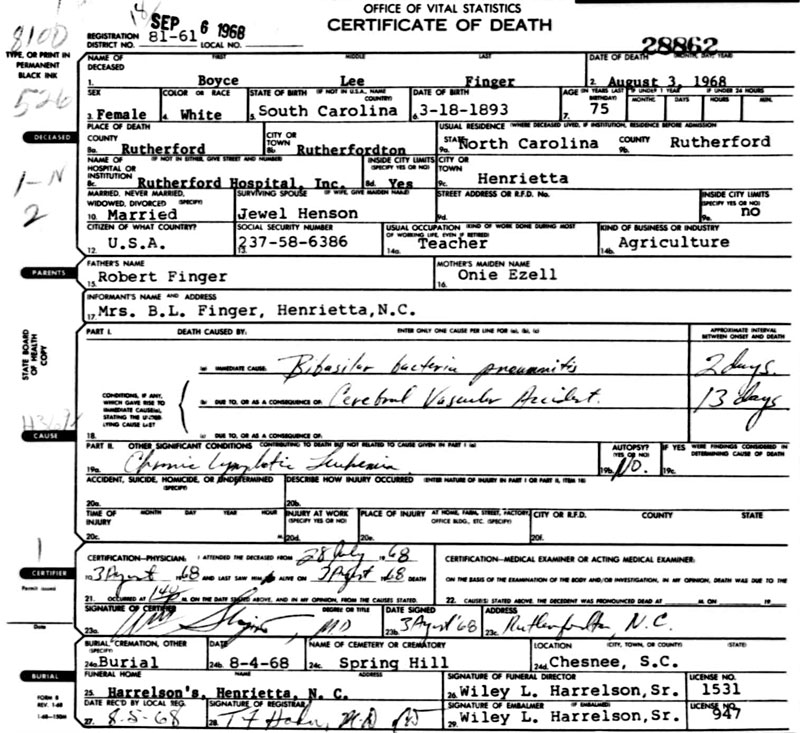 OFFICE OF VITAL STATISTICS
CERTIFICATE OF DEATH
SEP 6 1968
REGISTRATION DISTRICT NO. 81-61 LOCAL NO.
28862
8100
TYPE, OR PRINT IN PERMANENT BLACK INK
526
NAME OF DECEASED FIRST MIDDLE LAST DATE OF DEATH (MONTH, DAY, YEAR)
1. Boyce Lee Finger 2. August 3, 1968
SEX COLOR OR RACE STATE OF BIRTH (IF NOT IN U.S.A., NAME COUNTRY) DATE OF BIRTH AGE (IN YEARS LAST BIRTHDAY) IF UNDER 1 YEAR IF UNDER 24 HOURS
MONTHS DAYS HOURS MIN.
3. Female 4. White 5. South Carolina 6. 3-18-1893 7. 75
DECEASED
PLACE OF DEATH CITY OR TOWN USUAL RESIDENCE (WHERE DECEASED LIVED, IF INSTITUTION, RESIDENCE BEFORE ADMISSION)
COUNTY STATE COUNTY
8a. Rutherford 8b. Rutherfordton 9a. North Carolina 9b. Rutherford
NAME OF HOSPITAL OR INSTITUTION (IF NOT IN EITHER, GIVE STREET AND NUMBER) INSIDE CITY LIMITS (SPECIFY YES OR NO) CITY OR TOWN
8c. Rutherford Hospital, Inc. 8d. Yes 9c. Henrietta
1-N
2
MARRIED, NEVER MARRIED, WIDOWED, DIVORCED (SPECIFY) SURVIVING SPOUSE (IF WIFE, GIVE MAIDEN NAME) STREET ADDRESS OR R.F.D. No. INSIDE CITY LIMITS (SPECIFY YES OR NO)
10. Married Jewel Henson 9d. 9e. no
CITIZEN OF WHAT COUNTRY? SOCIAL SECURITY NUMBER USUAL OCCUPATION (KIND OF WORK DONE DURING MOST OF WORKING LIFE, EVEN IF RETIRED) KIND OF BUSINESS OR INDUSTRY
12. U.S.A. 13. 237-58-6386 14a. Teacher 14b. Agriculture
PARENTS
FATHER'S NAME MOTHER'S MAIDEN NAME
15. Robert Finger 16. Onie Ezell
INFORMANT'S NAME AND ADDRESS
17. Mrs. B.L. Finger, Henrietta,N.C.
STATE BOARD OF HEALTH COPY
PART I. DEATH CAUSED BY: ENTER ONLY ONE CAUSE PER LINE FOR (a), (b), (c) APPROXIMATE INTERVAL BETWEEN ONSET AND DEATH
(a) IMMEDIATE CAUSE: Bibasilar bacteria pneumonitis 2 days.
CONDITIONS, IF ANY, WHICH GAVE RISE TO IMMEDIATE CAUSE(a), STATING THE UNDERLYING CAUSE LAST
(b) DUE TO, OR AS A CONSEQUENCE OF: Cerebral Vascular Accident. 13 days
18. (c) DUE TO, OR AS A CONSEQUENCE OF:
CAUSE
PART II. OTHER SIGNIFICANT CONDITIONS CONTRIBUTING TO DEATH BUT NOT RELATED TO CAUSE GIVEN IN PART I (a) AUTOPSY? (YES OR NO) IF YES WERE FINDINGS CONSIDERED IN DETERMINING CAUSE OF DEATH
19a. Chronic Lymphotic Leukemia 19b. NO. 19c.
ACCIDENT, SUICIDE, HOMICIDE, OR UNDETERMINED (SPECIFY) DESCRIBE HOW INJURY OCCURRED (ENTER NATURE OF INJURY IN PART I OR PART II, ITEM 18)
20a. 20b.
TIME OF INJURY MONTH DAY YEAR HOUR INJURY AT WORK (SPECIFY YES OR NO) PLACE OF INJURY AT HOME, FARM, STREET, FACTORY, OFFICE BLDG., ETC. (SPECIFY) CITY OR R.F.D. COUNTY STATE
20c. 20d. 20e. 20f.
1
CERTIFICATION—PHYSICIAN: I ATTENDED THE DECEASED FROM 28 July 1968 CERTIFICATION—MEDICAL EXAMINER OR ACTING MEDICAL EXAMINER:
CERTIFIER
TO 3 August 1968 AND LAST SAW HIM ALIVE ON 3 August 68 DEATH ON THE BASIS OF THE EXAMINATION OF THE BODY AND/OR INVESTIGATION, IN MY OPINION, DEATH WAS DUE TO THE
Permit issued
21. OCCURRED AT M. ON THE DATE STATED ABOVE, AND IN MY OPINION, FROM THE CAUSES STATED. 22. CAUSE(S) STATED ABOVE, THE DECEDENT WAS PRONOUNCED DEAD AT M. ON 19
SIGNATURE OF CERTIFIER DEGREE OR TITLE DATE SIGNED ADDRESS
23a. MD 23b. 3 August '68 23c. Rutherfordton, N.C.
Date
BURIAL, CREMATION, OTHER (SPECIFY) DATE NAME OF CEMETERY OR CREMATORY LOCATION (CITY, TOWN, OR COUNTY) (STATE)
24a. Burial 24b. 8-4-68 24c. Spring Hill 24d. Chesnee, S.C.
BURIAL
FUNERAL HOME NAME ADDRESS SIGNATURE OF FUNERAL DIRECTOR LICENSE NO.
25. Harrelson's, Henrietta, N. C. 26. Wiley L. Harrelson,Sr. 1531
FORM 8
REV. 1-68
1-68-150M
DATE REC'D BY LOCAL REG. SIGNATURE OF REGISTRAR SIGNATURE OF EMBALMER (IF EMBALMED) LICENSE NO.
27. 8-5-68 28. M.D. 29. Wiley L. Harrelson,Sr. 947